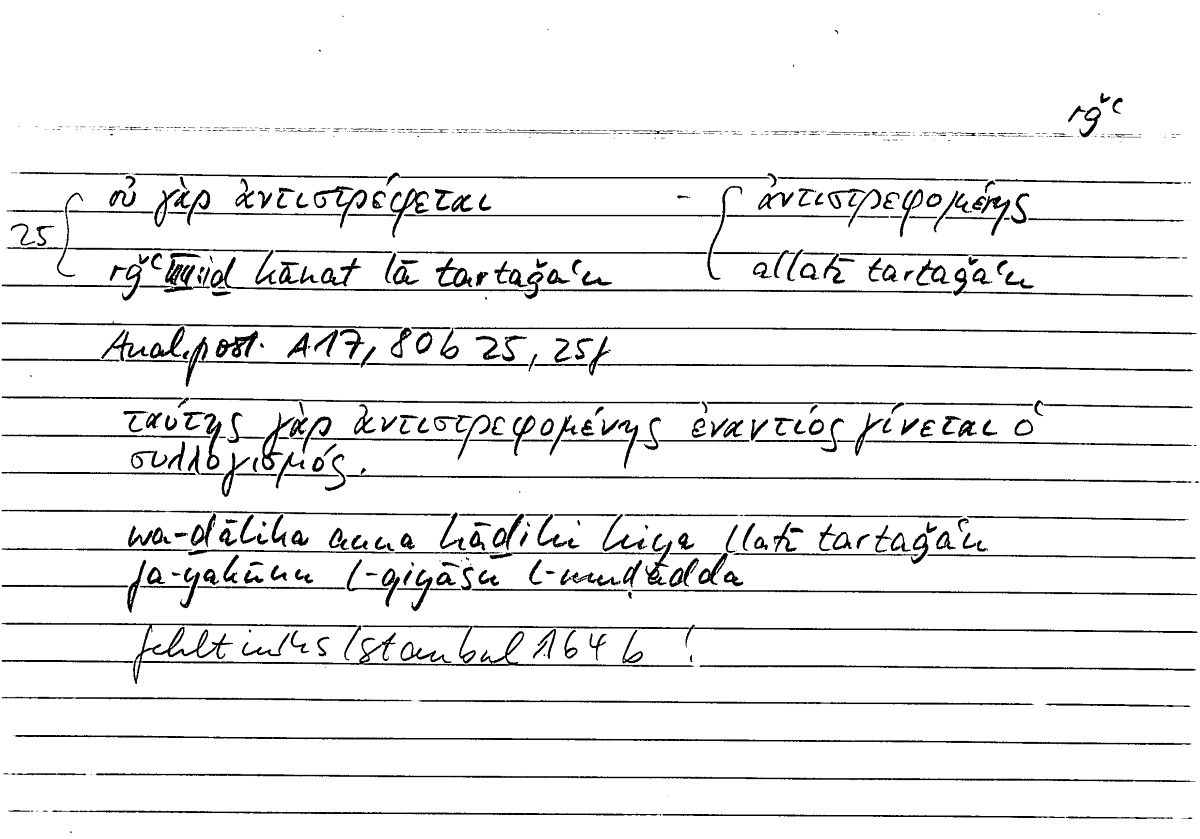 rǧʿ
οὐ γὰρ ἀντιστρέφεται - ἀντιστρεφομένης
25
rǧʿ kānat lā tartaǧaʿu allatī tartaǧaʿu
Anal. post. A17, 80b 25, 25f
ταύτης γὰρ ἀντιστρεφομένης ἐναντίος γίνεται ὁ
συλλογισμός.
wa-ḏālika anna hāḏihi hiya llatī tartaǧaʿu
fa-yakūnu l-qiyāsu l-muḍādda
fehlt in Hs Istanbul 164b !